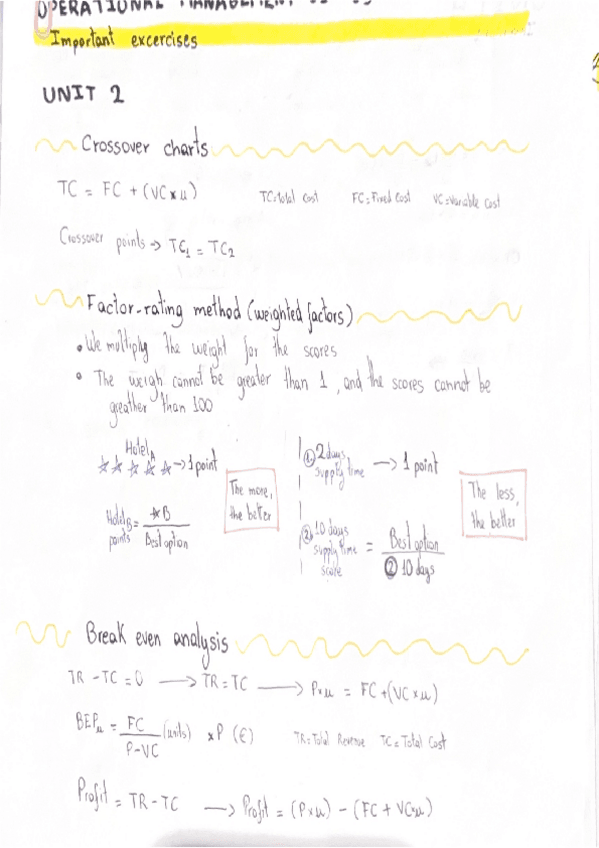 OPERATIONAL MANAGEMENT
Important excercises
UNIT 2
Crossover charts
TC = FC + (VC x u) TC=Total Cost FC=Fixed Cost VC=Variable Cost
Crossover points → TC1 = TC2
Factor-rating method (weighted factors)
• We multiply the weight for the scores
• The weigh cannot be greater than 1, and the scores cannot be
greather than 100
Hotel A
☆☆☆☆☆ → 1 point
The more,
the better
Hotel B points = ☆B / Best option
① 2 days supply time → 1 point
The less,
the better
② 10 days supply time score = Best option / ② 10 days
Break even analysis
TR - TC = 0 → TR = TC → P x u = FC + (VC x u)
BEPu = FC / P-VC (units) x P (€) TR=Total Revenue TC=Total Cost
Profit = TR - TC → Profit = (P x u) - (FC + VC x u)